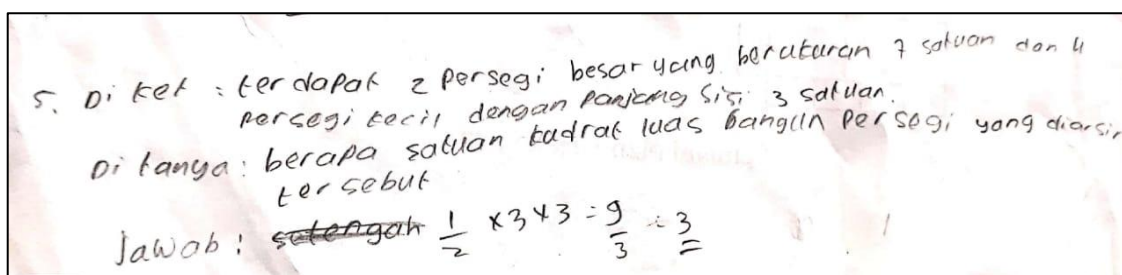 5. Diket : terdapat 2 persegi besar yang berukuran 7 satuan dan 4
persegi kecil dengan panjang sisi 3 satuan.
Ditanya: berapa satuan kadrat luas bangun persegi yang diarsir
tersebut
Jawab : setengah 1/2 x 3 x 3 = 9/3 = 3